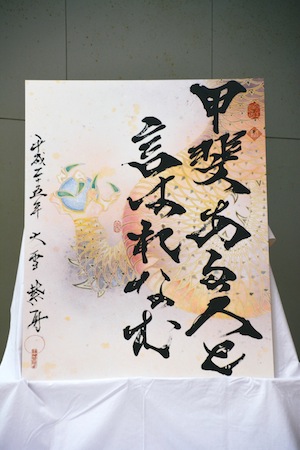 甲斐ある人と
言はれなむ
平成二十五年 大雪 紫舟